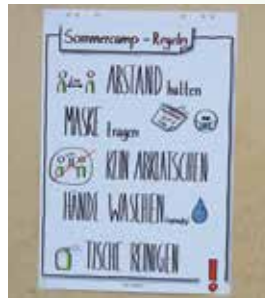 Sommercamp - Regeln
ABSTAND halten
MASKE tragen
KEIN ABKLATSCHEN
HÄNDE WASCHEN
TISCHE REINIGEN
!